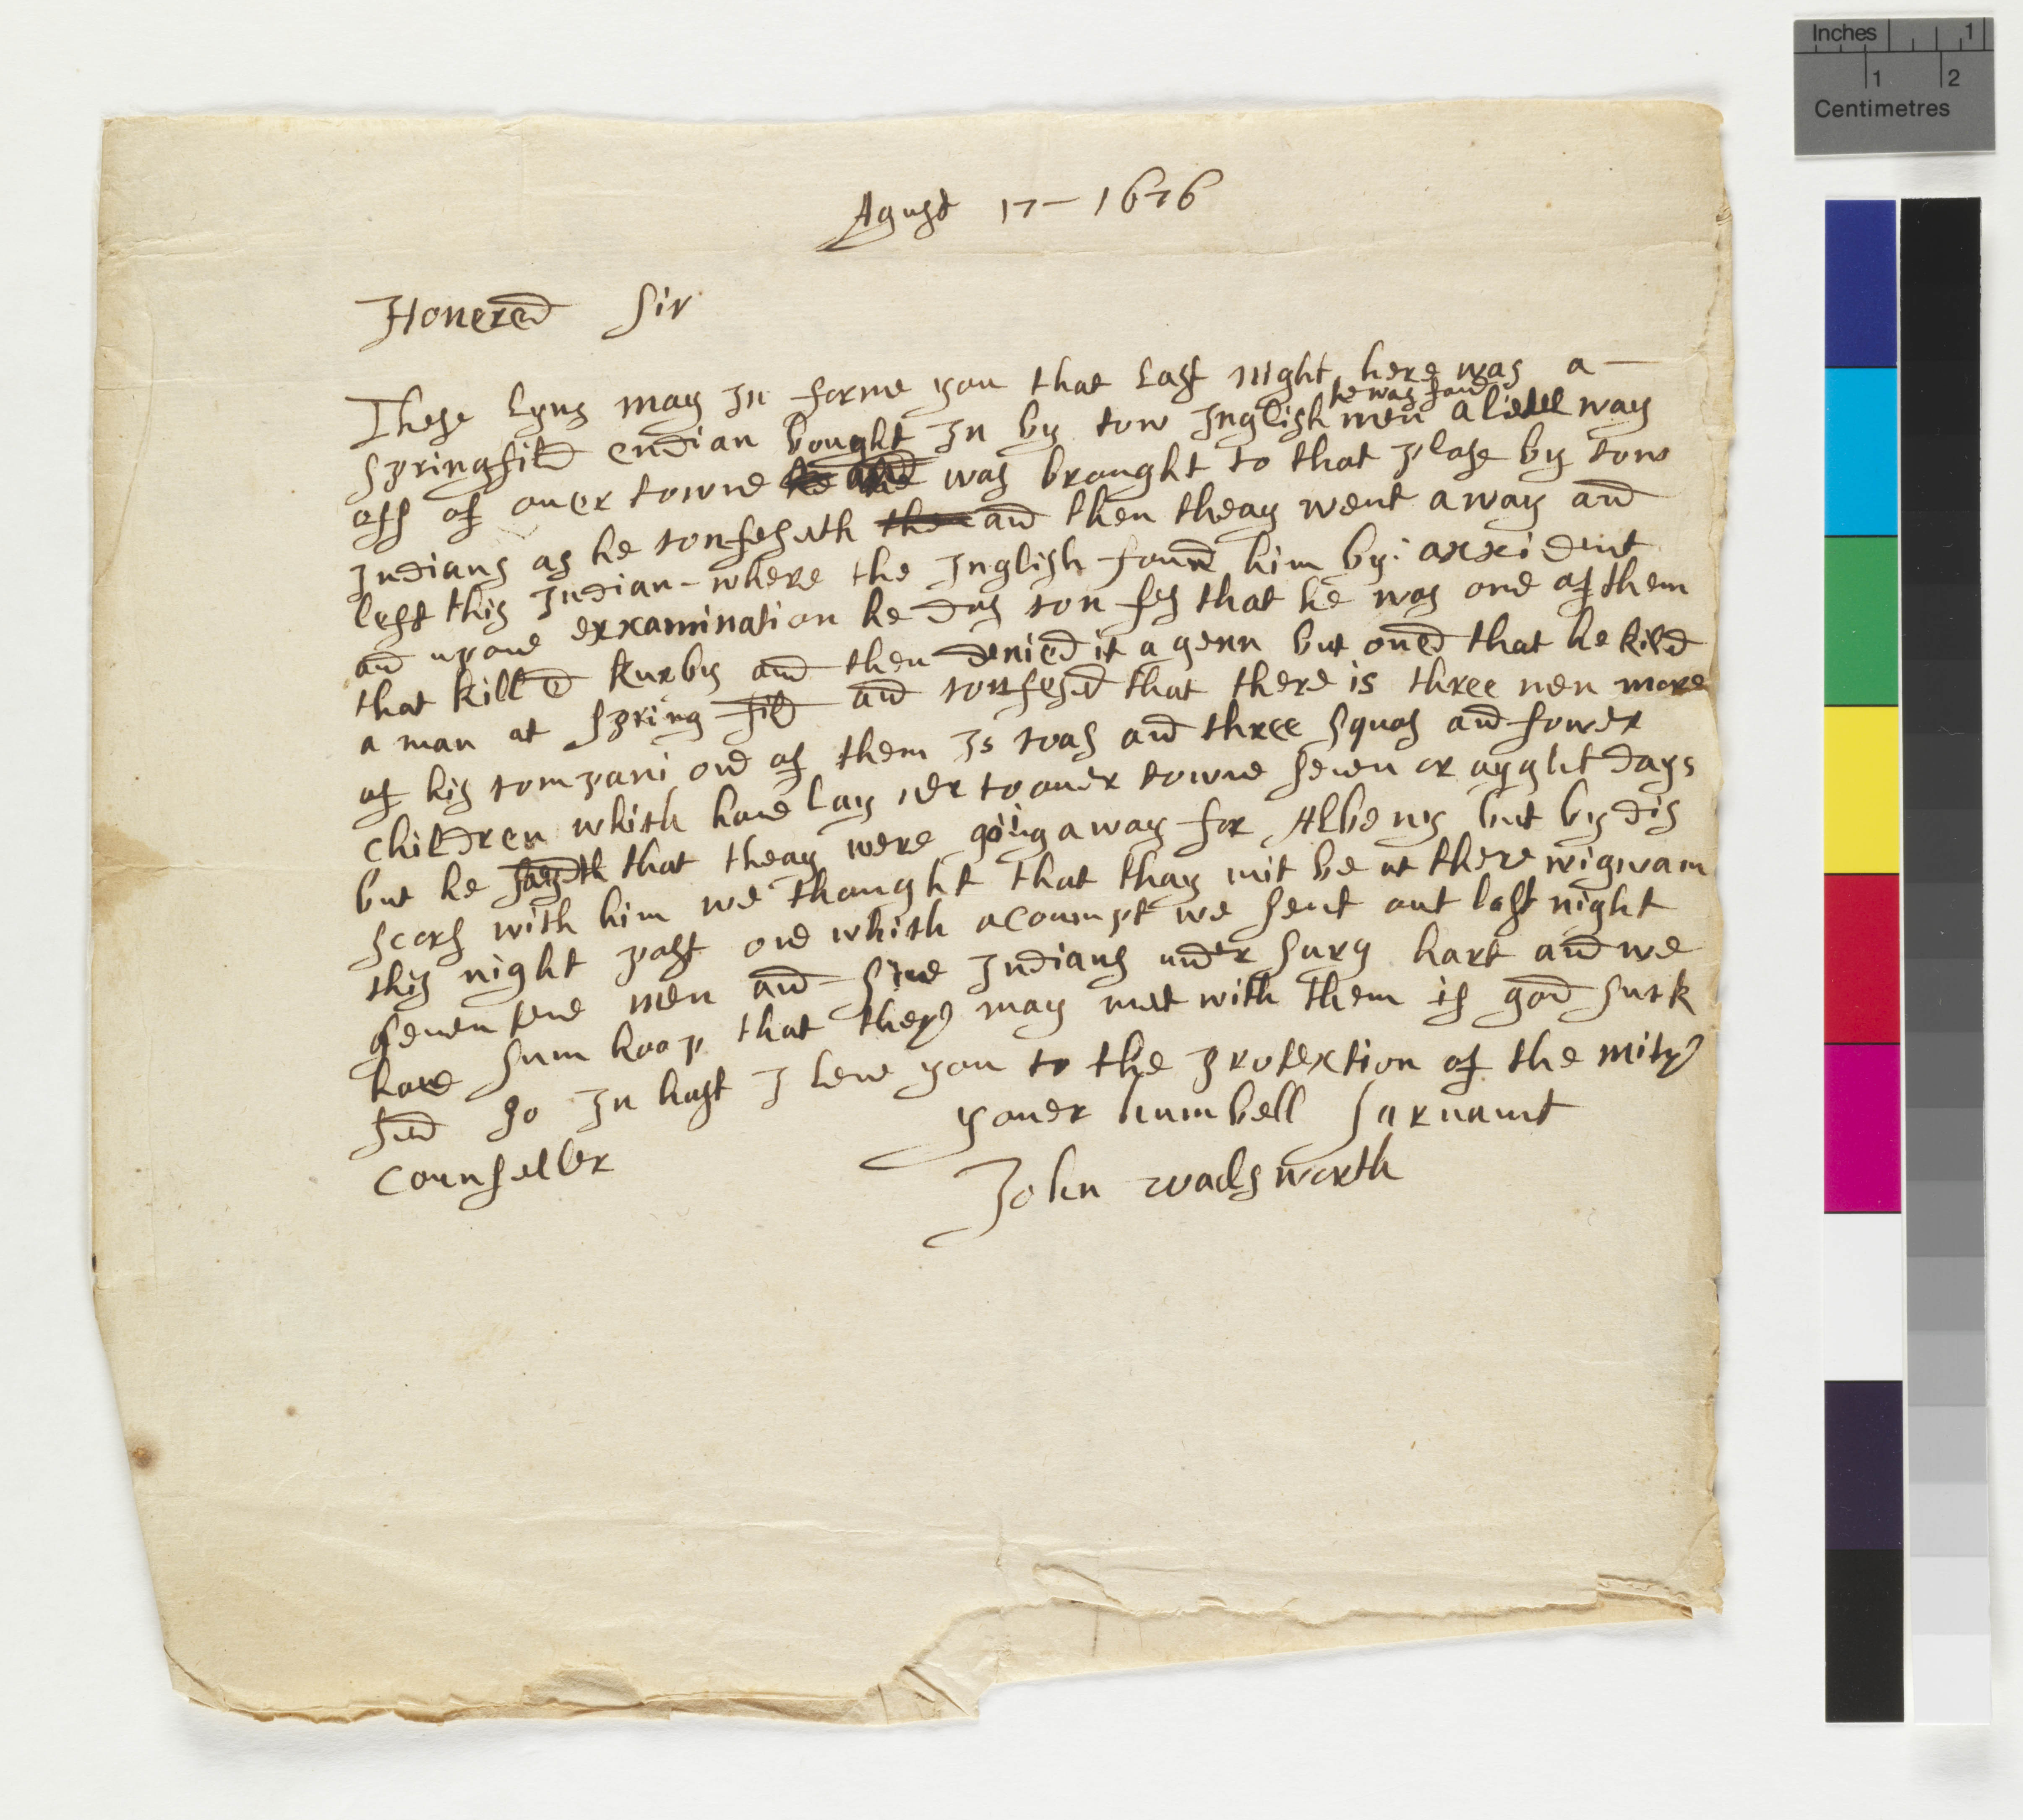 Agust 17 - 1676
Honered Sir
These lyns may In forme you that Last night here was a
he was foud
Springfild endian bought In by tow Inglish men a litell way
off of ouer towne he and was brought to that plase by tow
Indians as he confeseth then and then theay went away and
left this Indian - where the Inglish found him by: axxident
and upone exxamination he dus con fes that he was one of them
that killed kurby and then denied it a genn but oned that he kild
a man at Spring fild and confesed that there is three men more
of his compani one of them Is coas and three squas and fower
children which have lay ner to ouer towne seven or ayght days
but he sayeth that theay were going away for Albeny but by dis
scors with him we thought that thay mit be at there wigwam
this night past one which acoumpt we sent out last night
seventene men and five Indians under surg hart and we
have sum hoop that they may met with them if god suck
sed so In hast I leve you to the protextion of the mity
counseller
youer humbell sarvamt
John wadsworth
Inches 1
1 2
Centimetres